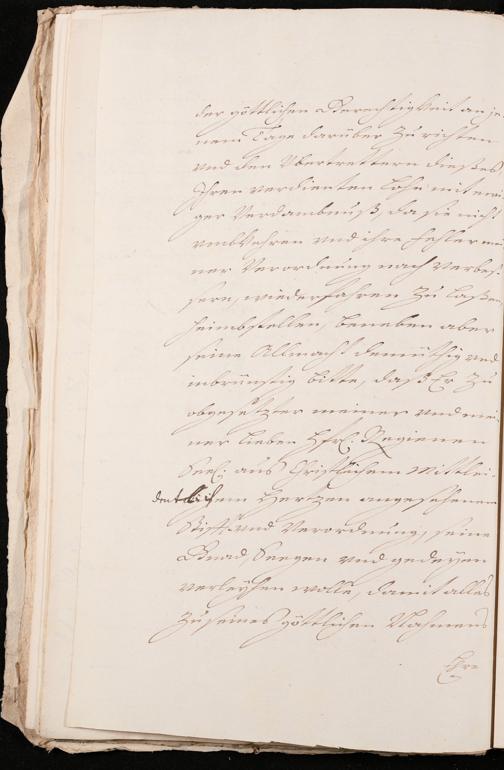 der göttlichen Gerechtigkeit an je-
nem Tage darüber zu richten
vnd den Vbertrettern dießes
Ihren verdienten Lohn mit ewi-
ger Verdambnuß, da sie nicht
vmbkehren vnd ihre Fehler mei-
ner Verordnung nach verbeß-
sern, wiederfahren zu laßen
heimbstellen, beneben aber
seine Allmacht demüthig vnd
inbrünstig bitte, daß Er zu
obgesetzter meiner vnd mei-
ner lieben Regienen
Seel. aus Christlichem Mitlei-
dentlichem Hertzen angesehenen
Stifft vnd Verordnung, seine
Gnad, Seegen vnd gedeyen
verleyhen wolle, damit alles
zu seines göttlichen Nahmens
Ehre